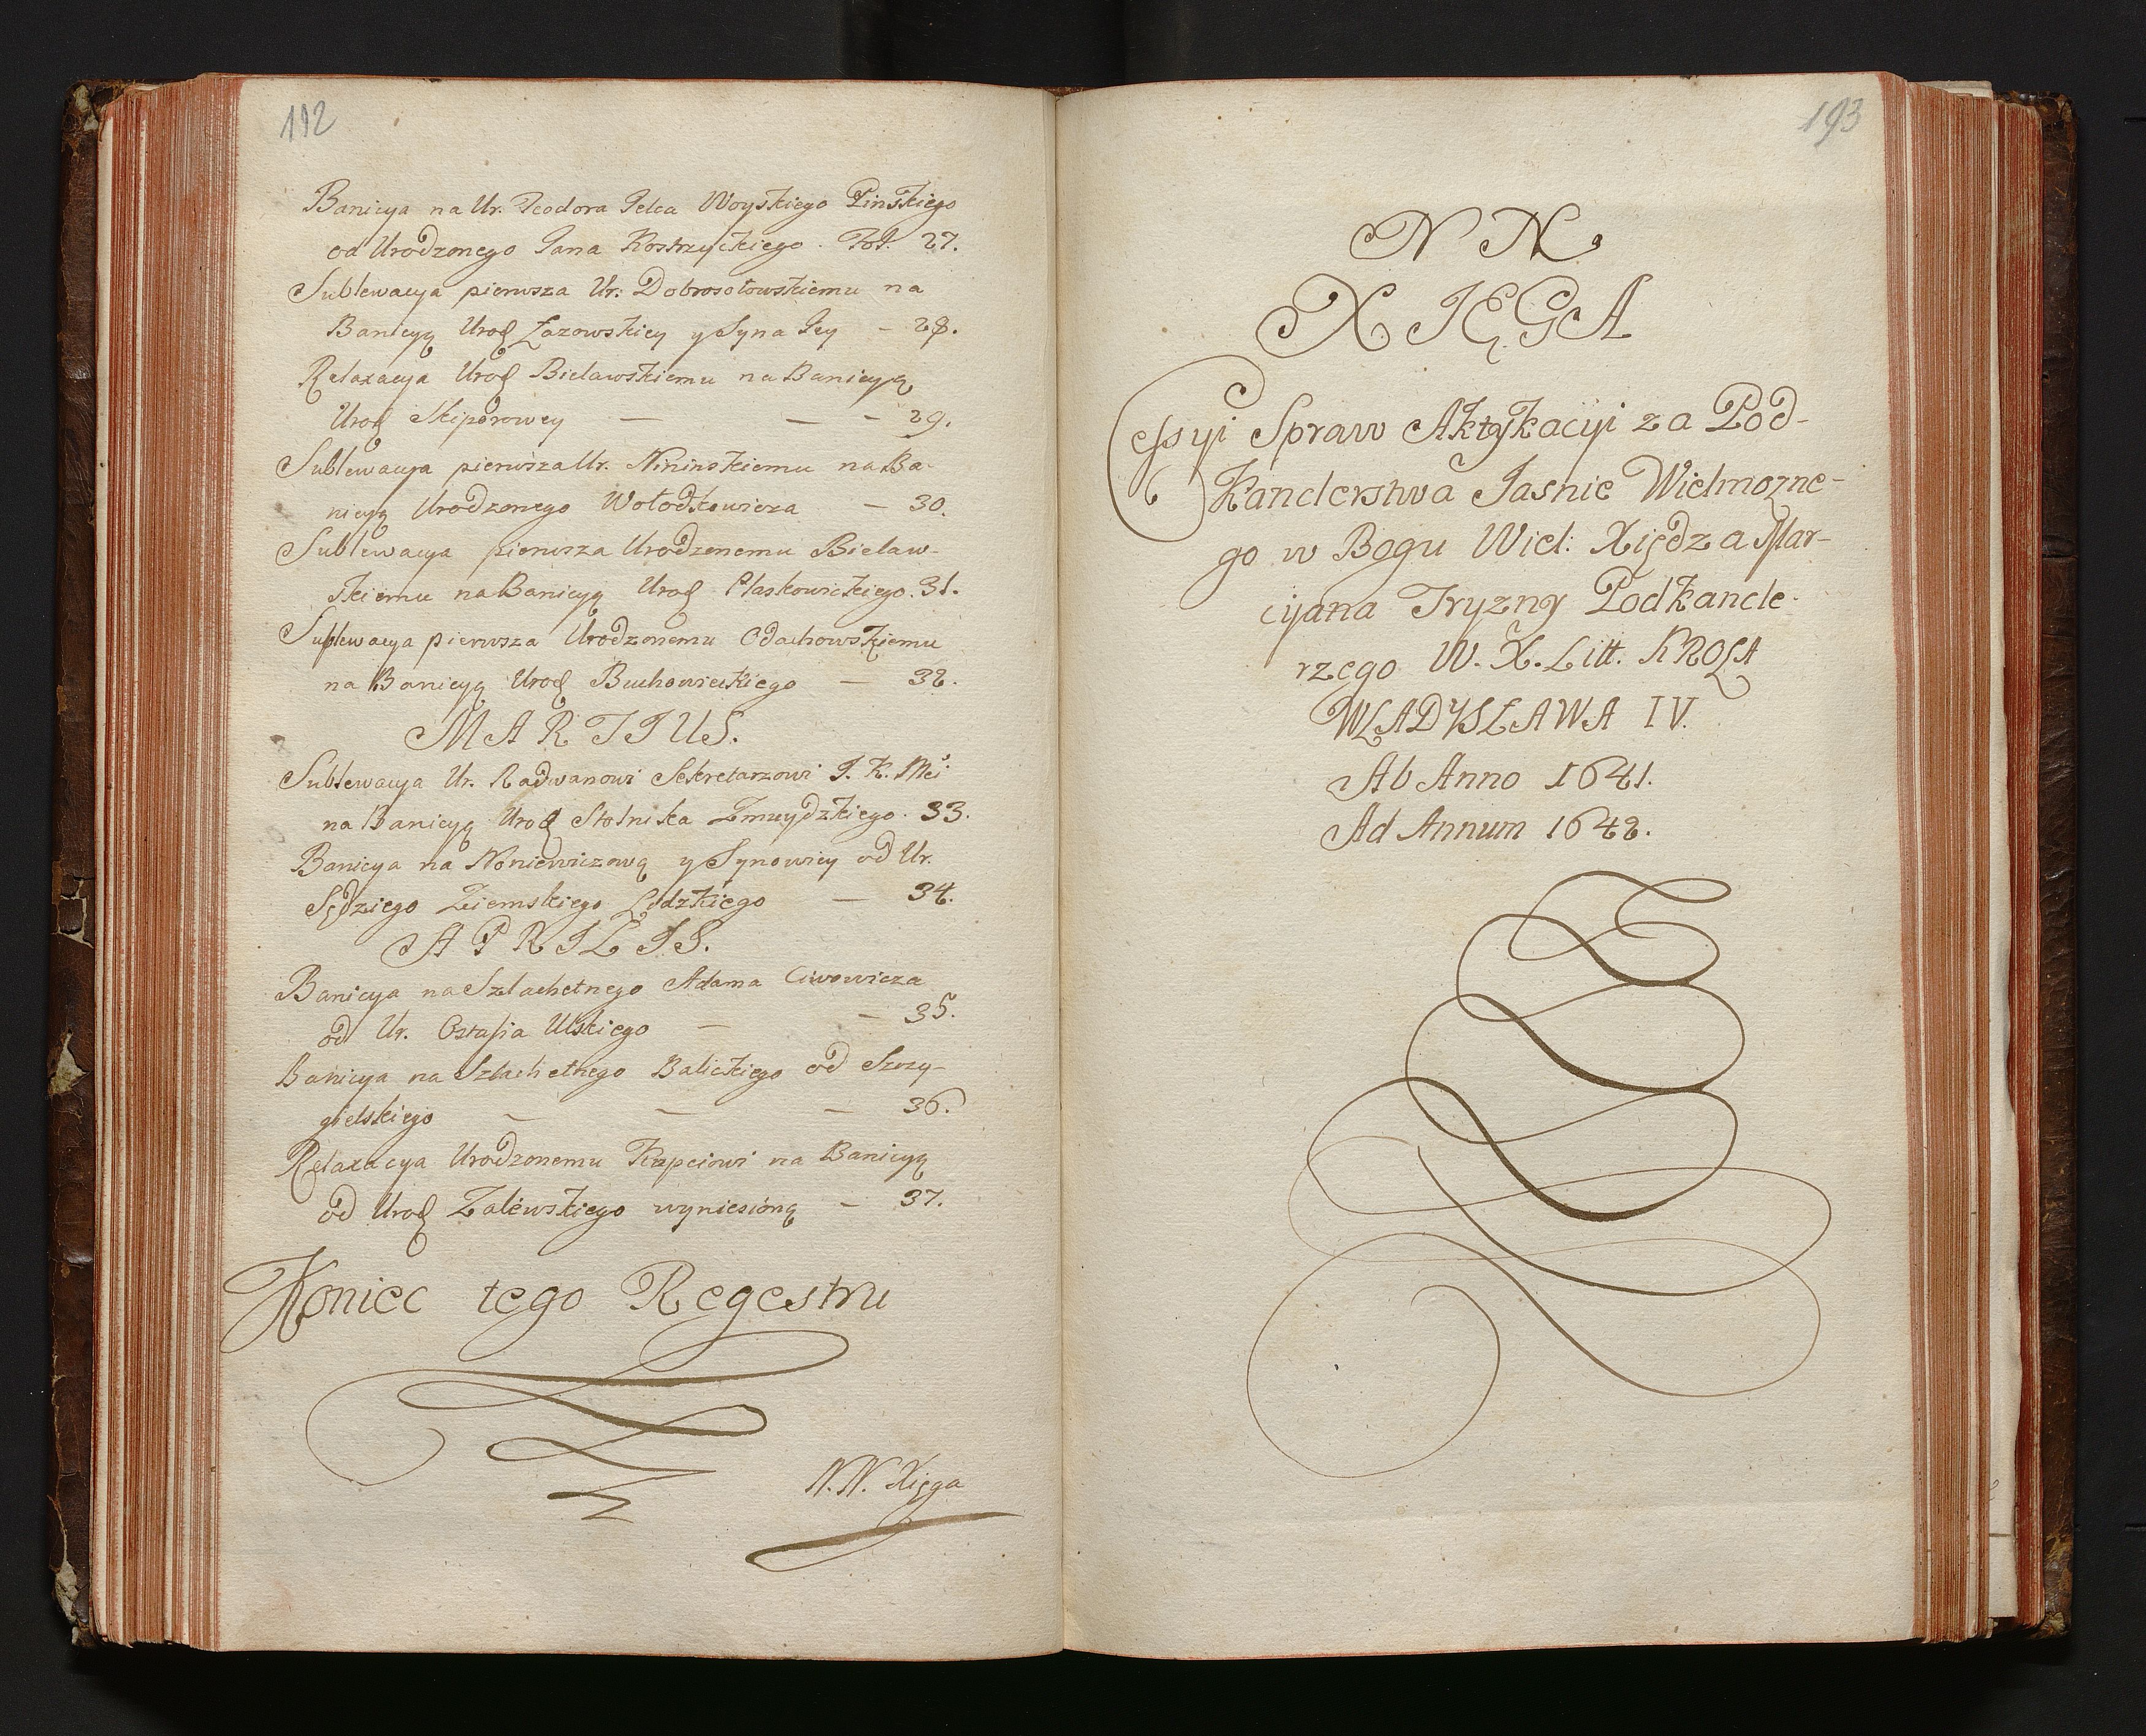 192
Banicya na Ur. Teodora Jelca Woyskiego Pinskiego
od Urodzonego Jana Kostrzyckiego. Fol. 27.
Sublewacya pierwsza Ur: Dobrosołowskiemu na
Banicyą Urod Łazowskiey y Syna Jey — 28.
Relaxacya Urod Bielawskiemu na Banicyą
Urod Skiporowey — — — 29.
Sublewacya pierwsza Ur. Nininskiemu na Ba-
nicyą Urodzonego Wołodkowicza — 30.
Sublewacya pierwsza Urodzonemu Bielaw-
skiemu na Banicyą Urod Płaskowickiego. 31.
Sublewacya pierwsza Urodzonemu Odachowskiemu
na Banicyą Urod Buchowieckiego — 32.
MARTIUS.
Sublewacya Ur. Radwanowi Sekretarzowi J. K. Mci
na Banicyą Urod Stolnika Zmuydzkiego. 33.
Banicya na Noniewiczową y Synowicy od Ur.
Sędziego Ziemskiego Lidzkiego — 34.
APRILIS.
Banicya na Szlachetnego Adama Ciwowicza
od Ur. Ostafia Ulskiego — — 35.
Banicya na Szlachetnego Balickiego od Szczy-
gielskiego — — — 36.
Relaxacya Urodzonemu Kupciowi na Banicyą
od Urod Zalewskiego wyniesióną — 37.
Koniec tego Regestru
N.N. Xięga
193
N N
XIĘGA
Cessyi Spraw Aktykacyi za Pod-
Kanclerstwa Jasnie Wielmozne-
go w Bogu Wiel: Xiędza Mar-
cyana Tryzny Podkancle-
rzego W. X. Litt. KROLA
WŁADYSŁAWA IV.
Ab Anno 1641.
Ad Annum 1642.